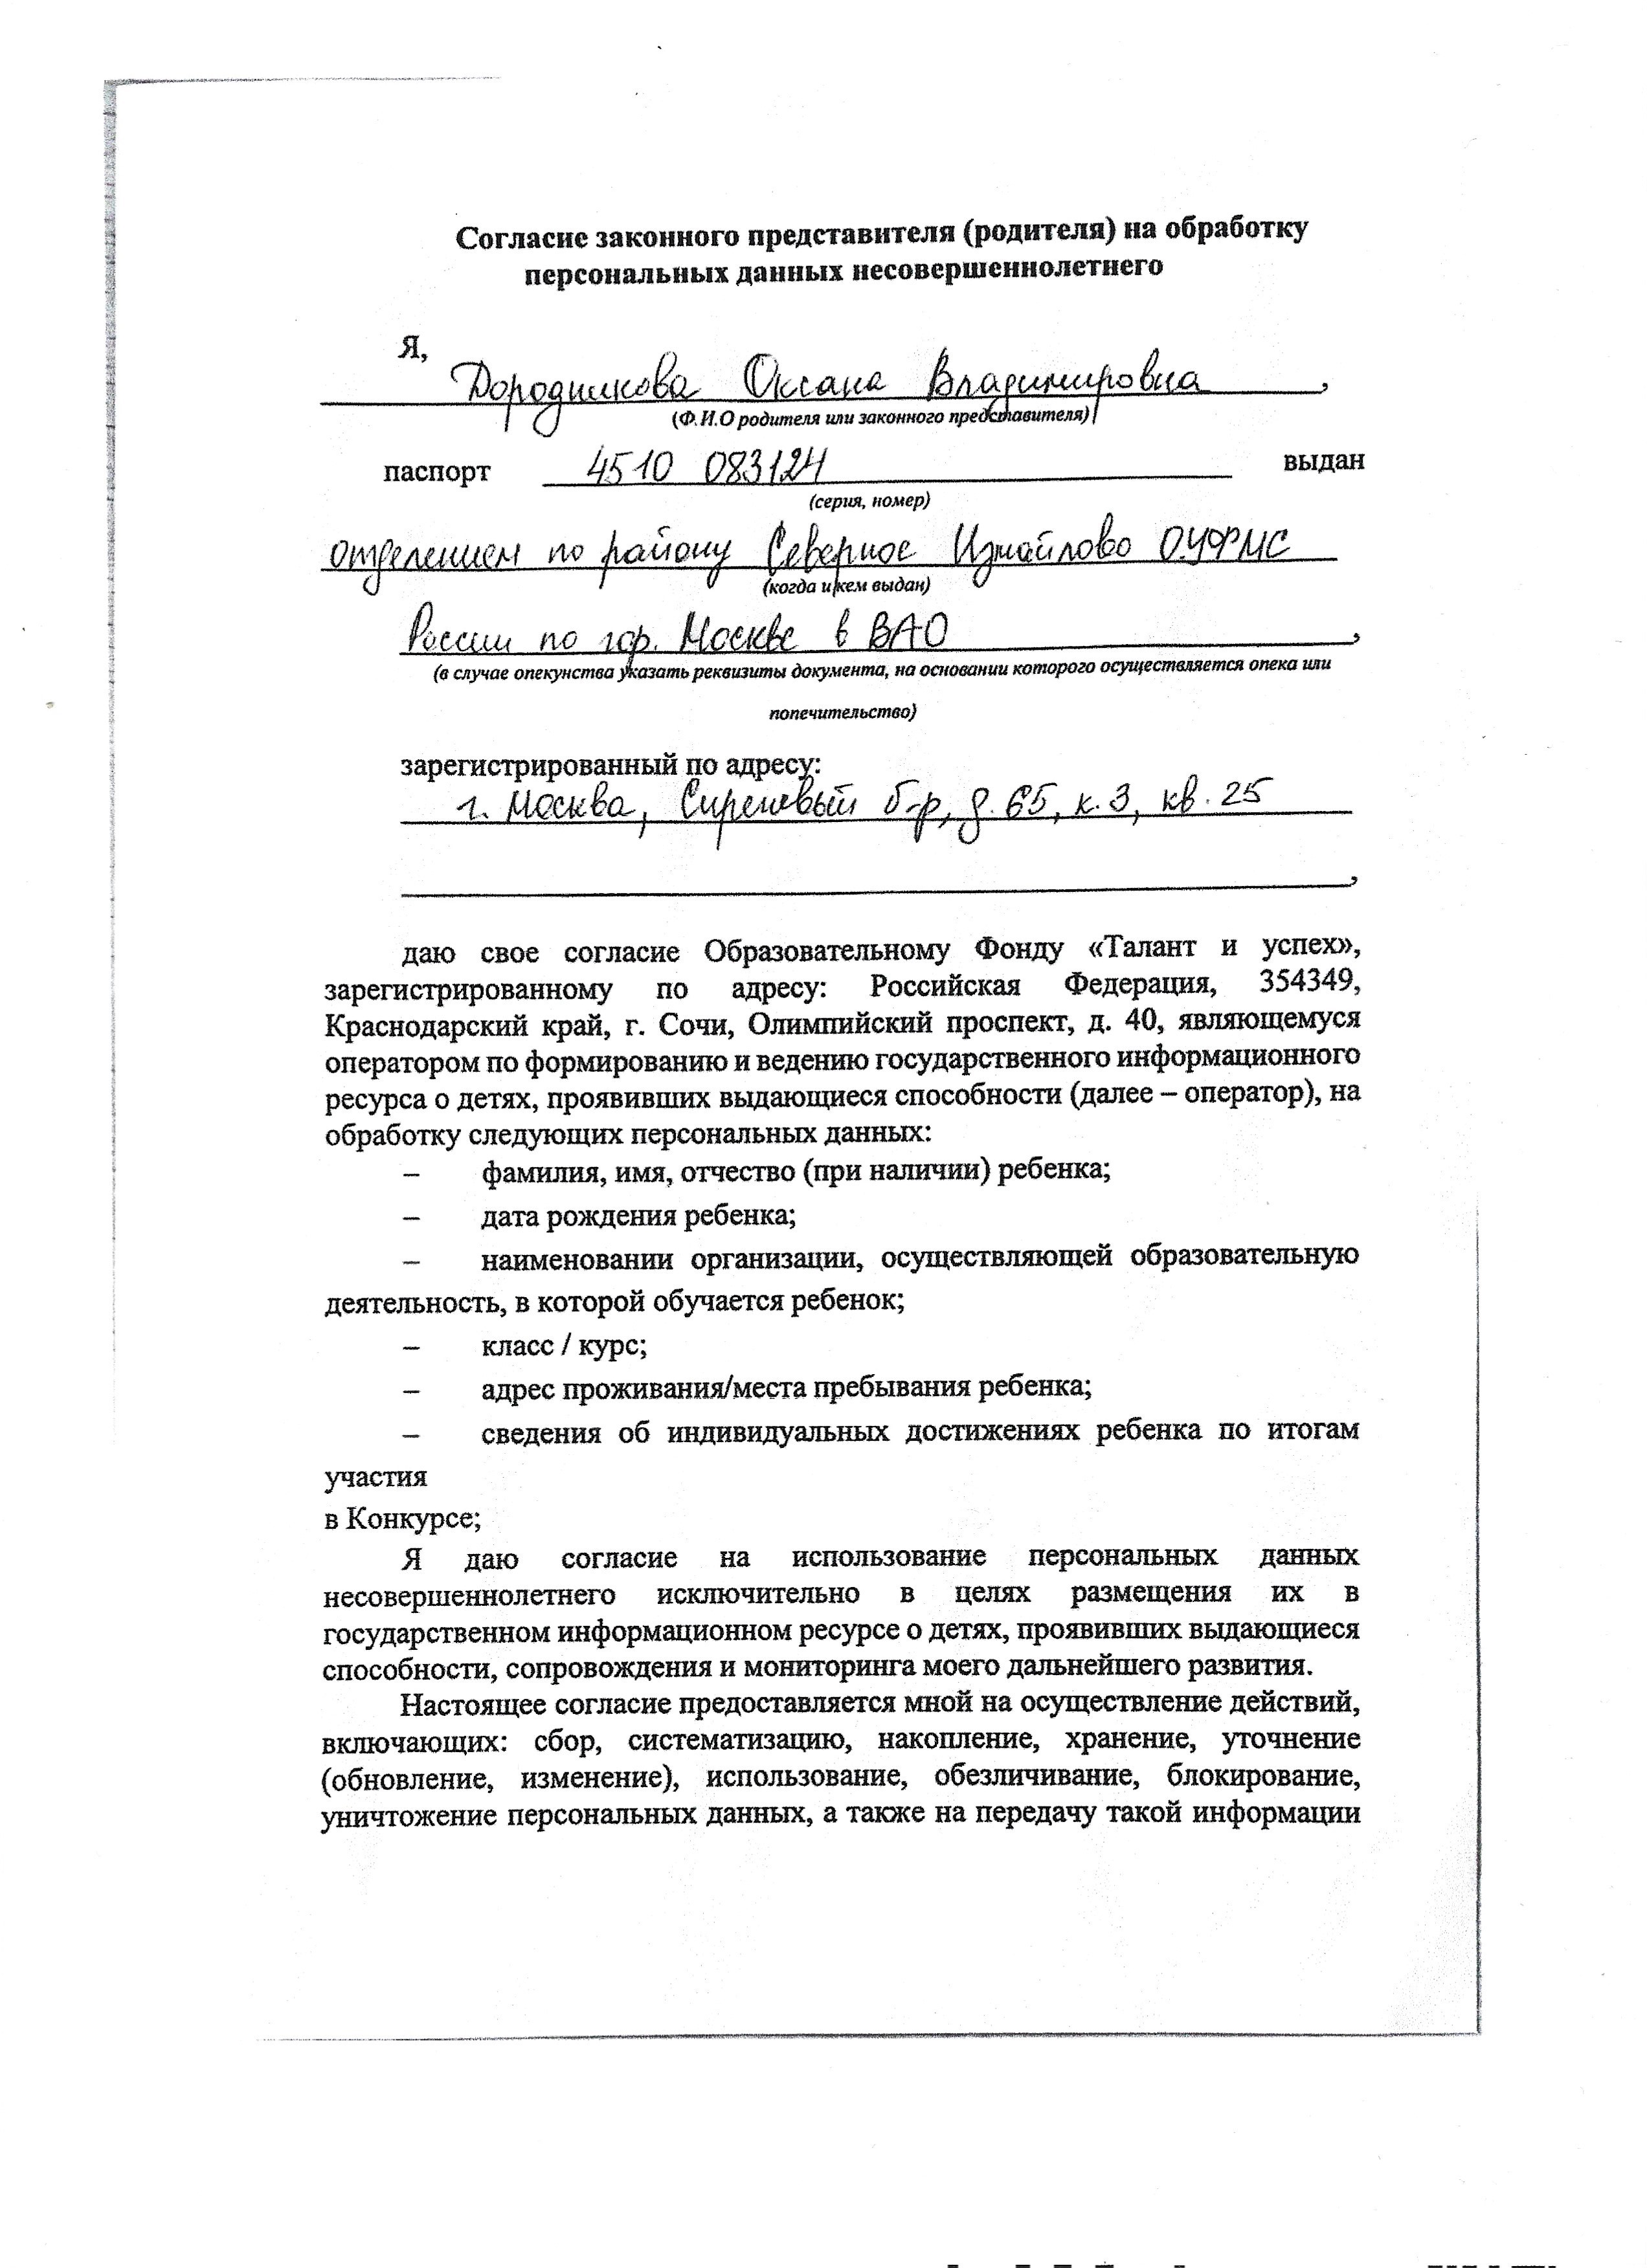 Согласие законного представителя (родителя) на обработку
персональных данных несовершеннолетнего
Я,
Дородникова Оксана Владимировна,
(Ф.И.О родителя или законного представителя)
паспорт 4510 083124 выдан
(серия, номер)
отделением по району Северное Измайлово ОУФМС
(когда и кем выдан)
России по гор. Москве в ВАО,
(в случае опекунства указать реквизиты документа, на основании которого осуществляется опека или
попечительство)
зарегистрированный по адресу:
г. Москва, Сиреневый б-р, д. 65, к. 3, кв. 25
,
даю свое согласие Образовательному Фонду «Талант и успех»,
зарегистрированному по адресу: Российская Федерация, 354349,
Краснодарский край, г. Сочи, Олимпийский проспект, д. 40, являющемуся
оператором по формированию и ведению государственного информационного
ресурса о детях, проявивших выдающиеся способности (далее – оператор), на
обработку следующих персональных данных:
– фамилия, имя, отчество (при наличии) ребенка;
– дата рождения ребенка;
– наименовании организации, осуществляющей образовательную
деятельность, в которой обучается ребенок;
– класс / курс;
– адрес проживания/места пребывания ребенка;
– сведения об индивидуальных достижениях ребенка по итогам
участия
в Конкурсе;
Я даю согласие на использование персональных данных
несовершеннолетнего исключительно в целях размещения их в
государственном информационном ресурсе о детях, проявивших выдающиеся
способности, сопровождения и мониторинга моего дальнейшего развития.
Настоящее согласие предоставляется мной на осуществление действий,
включающих: сбор, систематизацию, накопление, хранение, уточнение
(обновление, изменение), использование, обезличивание, блокирование,
уничтожение персональных данных, а также на передачу такой информации